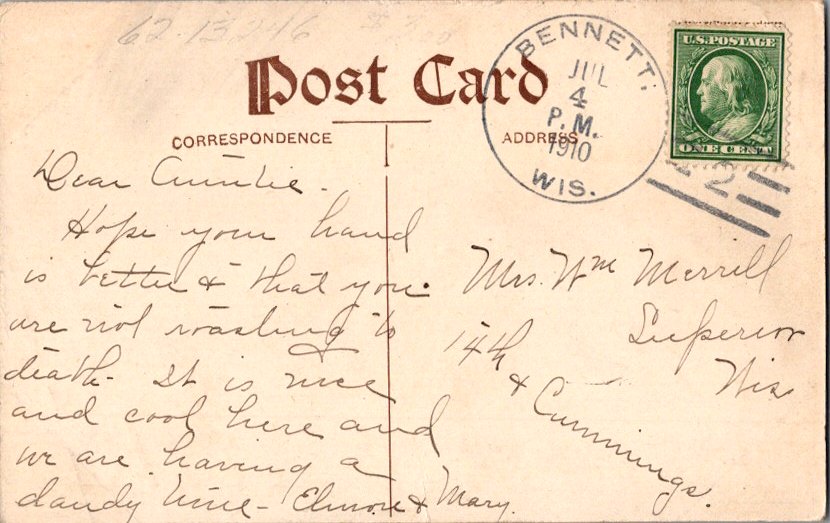 62-13246
Post Card
CORRESPONDENCE
ADDRESS
BENNETT.
JUL
4
P.M.
1910
WIS.
U.S. POSTAGE
ONE CENT
2
Dear Auntie.
Hope your hand
is better & that you
are not roasting to
death. It is nice
and cool here and
we are having a
dandy time - Elmore & Mary.
Mrs. Wm Merrill
Superior
Wis
14th
& Cummings.